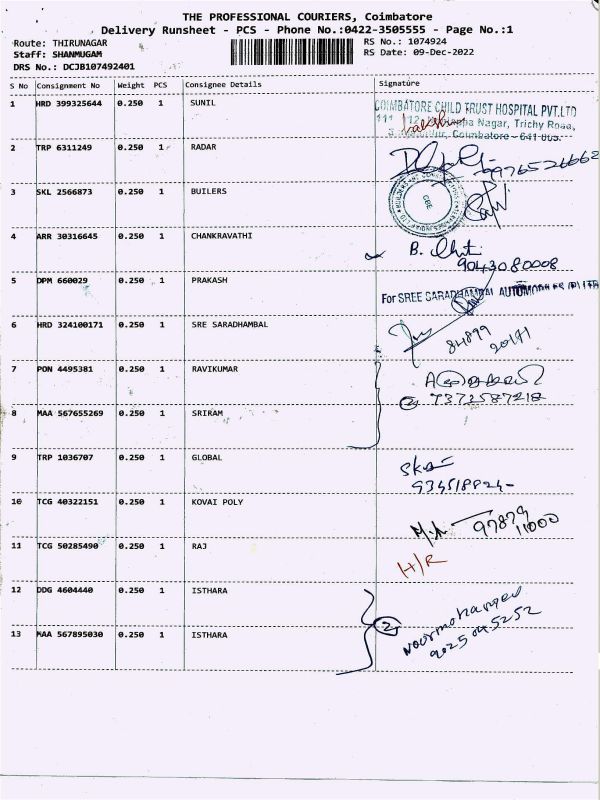 THE PROFESSIONAL COURIERS, Coimbatore
Delivery Runsheet - PCS - Phone No.:0422-3505555 - Page No.:1
Route: THIRUNAGAR
Staff: SHANMUGAM
DRS No.: DCJB107492401
RS No.: 1074924
RS Date: 09-Dec-2022
S No Consignment No Weight PCS Consignee Details Signature
1 HRD 399325644 0.250 1 SUNIL
COIMBATORE CHILD TRUST HOSPITAL PVT.LTD
Nagar, Trichy Road,
Coimbatore - 641 005.
2 TRP 6311249 0.250 1 RADAR
9976526662
3 SKL 2566873 0.250 1 BUILERS
CBE
4 ARR 30316645 0.250 1 CHANKRAVATHI
B.
9043080008
5 DPM 660029 0.250 1 PRAKASH
For SREE SARADHAMBAL AUTOMOBILES (P) LTD
6 HRD 324100171 0.250 1 SRE SARADHAMBAL
84899
20171
7 PON 4495381 0.250 1 RAVIKUMAR
8 MAA 567655269 0.250 1 SRIRAM
2 7372587218
9 TRP 1036707 0.250 1 GLOBAL
10 TCG 40322151 0.250 1 KOVAI POLY
97879
11000
11 TCG 50285490 0.250 1 RAJ
H/R
12 DDG 4604440 0.250 1 ISTHARA
13 MAA 567895030 0.250 1 ISTHARA
2
9025045252